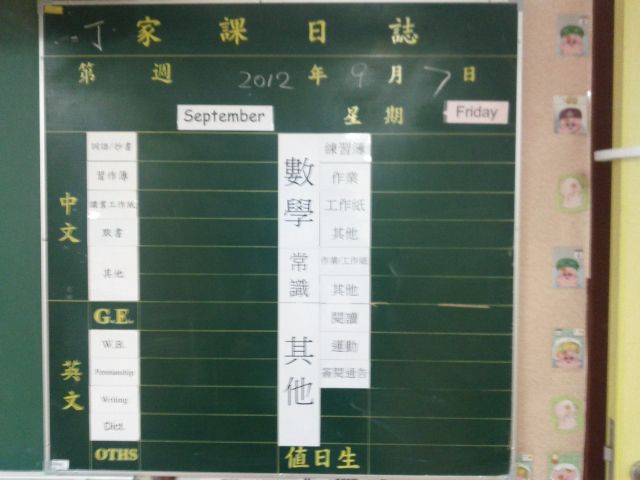 一丁 家課日誌
第 週 2012 年 9 月 7 日
September 星期 Friday
中文
詞語/抄書
習作簿
讀寫工作紙
默書
其他
英文
G.E.
W.B.
Penmanship
Writing
Dict.
OTHS
數學
練習簿
作業
工作紙
其他
常識
作業/工作紙
其他
其他
閱讀
運動
簽閱通告
值日生